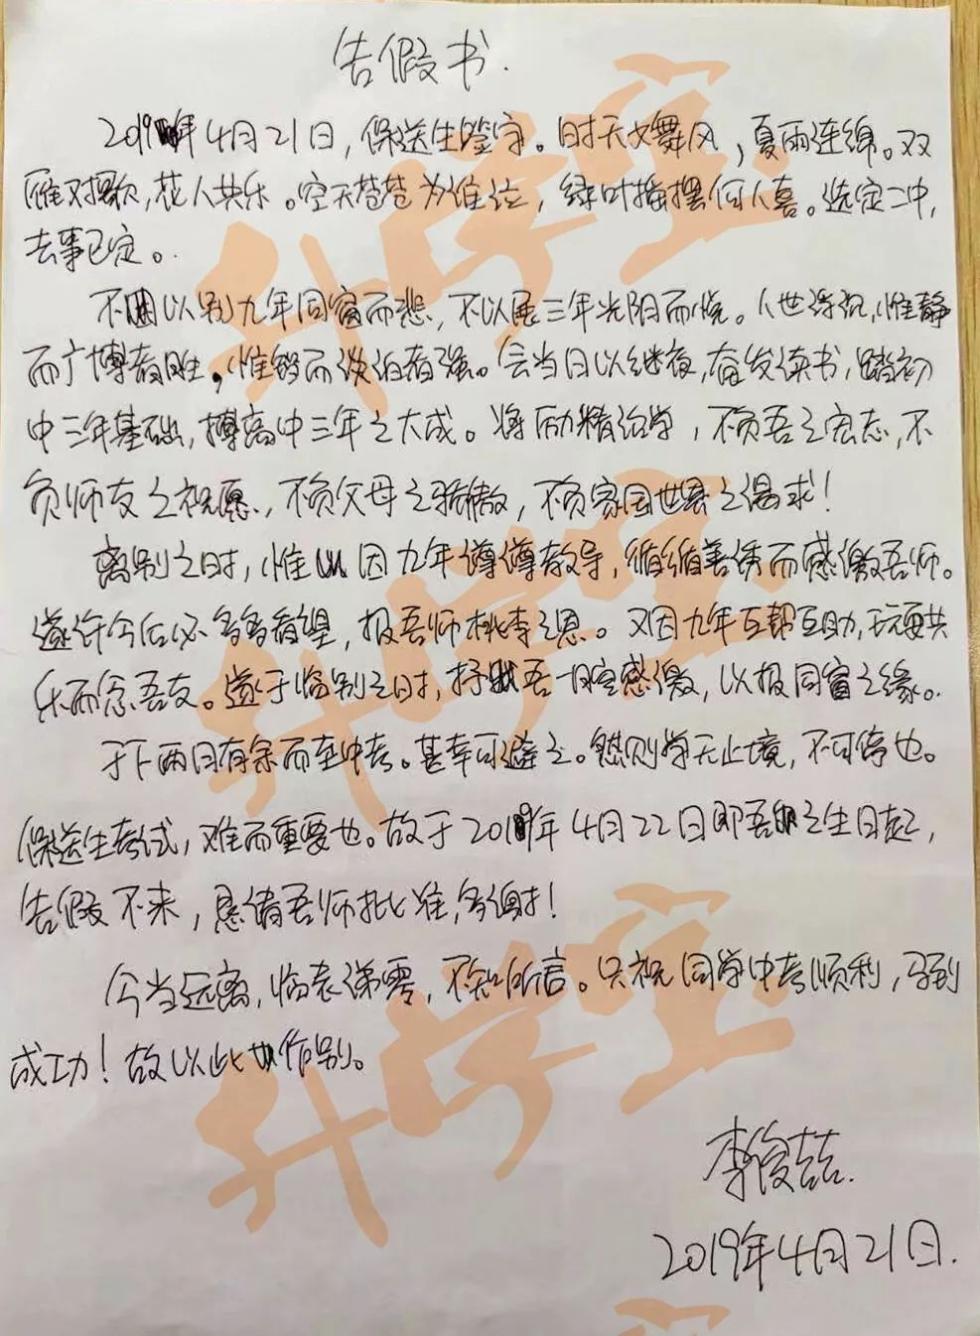 告假书.
2019年4月21日,保送生签字。时天火舞风,夏雨连绵。双
雁对歌,花人共乐。空天苍苍为谁泣,绿叶摇摆何人喜。选定二中,
去事已定。
不以别九年同窗而悲,不以展三年光阴而悦。人世浮沉,惟静
而广博者胜,惟智而淡泊者强。会当日以继夜,奋发读书,踏初
中三年基础,搏高中三年之大成。将励精治学,不负吾之宏志,不
负师友之祝愿,不负父母之骄傲,不负家国世界之渴求!
离别之时,惟以因九年谆谆教导,循循善诱而感激吾师。
遂许今后必多多看望,报吾师桃李之恩。又因九年互帮互助,玩耍共
乐而念吾友。遂于临别之时,抒吾一腔感激,以报同窗之缘。
于下两月有余而至中考。甚幸可避之。然则学无止境,不可停也。
保送生考试,难而重要也。故于2019年4月22日即吾之生日起,
告假不来,恳请吾师批准,多谢!
今当远离,临表涕零,不知所言。只祝同学中考顺利,马到
成功!故以此作别。
李俊喆.
2019年4月21日.
升学宝
升学宝
升学宝